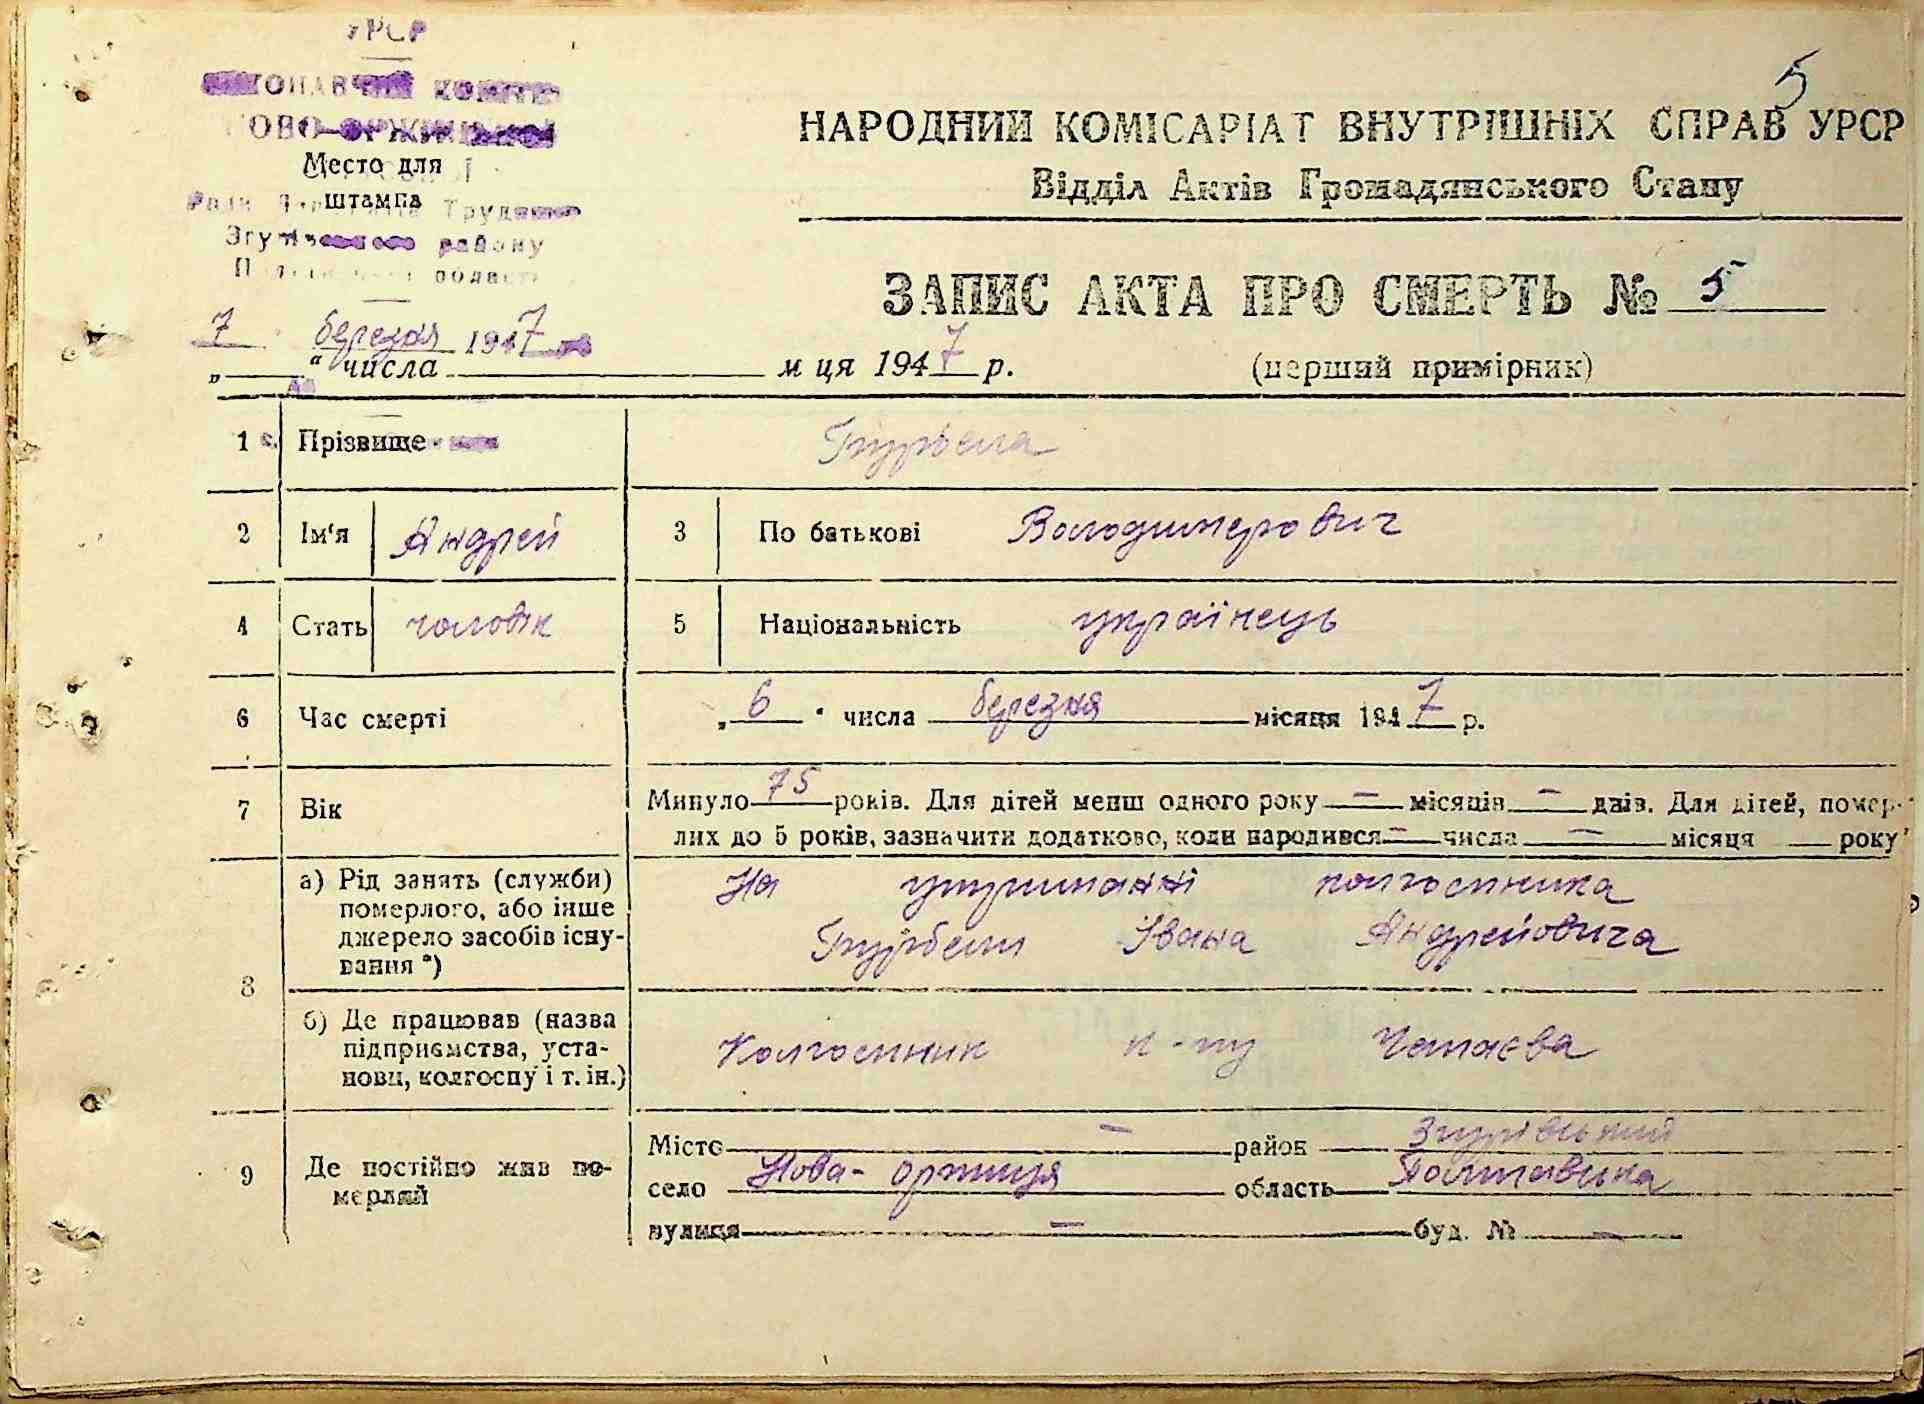 УРСР
5
ВИКОНАВЧИЙ КОМІТЕТ
НАРОДНИЙ КОМІСАРІАТ ВНУТРІШНІХ СПРАВ УРСР
НОВО-ОРЖИЦЬКОЇ
Место для
штампа
Відділ Актів Громадянського Стану
Ради Трудящих
Згурівського району
Полтавської області
ЗАПИС АКТА ПРО СМЕРТЬ № 5
7 березня 1947
„ “ числа м ця 1947 р. (перший примірник)
1 Прізвище Турбела
2 Ім'я Андрей 3 По батькові Володимерович
4 Стать чоловік 5 Національність українець
6 Час смерті „6“ числа березня місяця 1947 р.
7 Вік Минуло 75 років. Для дітей менш одного року — місяців — днів. Для дітей, помер-
лих до 5 років, зазначити додатково, коли народився — числа — місяця року
8 а) Рід занять (служби) померлого, або інше джерело засобів існування *) На утриманні колгоспника
Турбели Івана Андрейовича
б) Де працював (назва підприємства, установи, колгоспу і т. ін.) Колгоспник к-пу Чапаєва
9 Де постійно жив померлий Місто — район Згурівський
село Нова-оржиця область Полтавська
вулиця — буд. № —